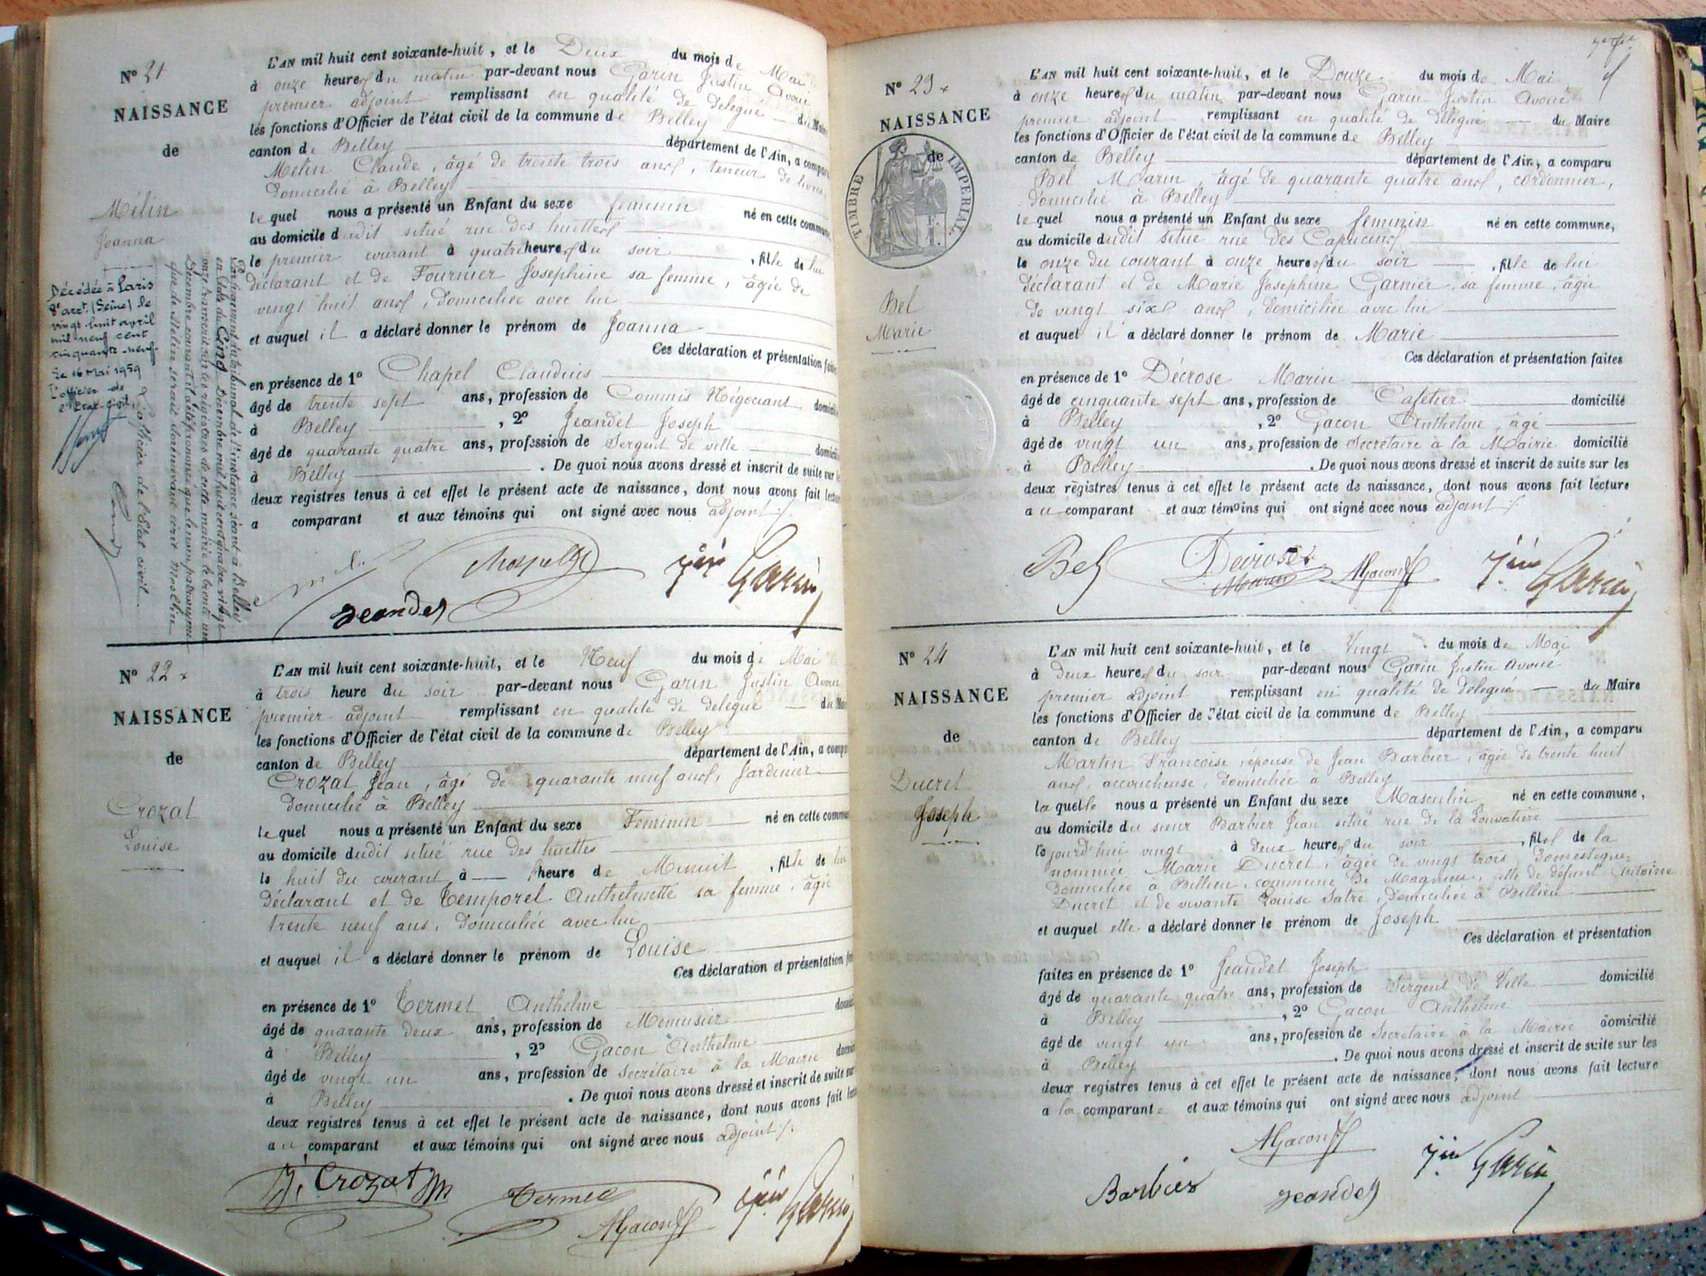 N° 21
NAISSANCE
de
Mélin
Joanna
Décédée à Paris
8e arrt. (Seine) le
vingt-huit avril
mil neuf cent
cinquante-neuf.
Le 16 Mai 1959
L'officier de
l'Etat-Civil,
L'AN mil huit cent soixante-huit, et le Deux du mois de Mai
à onze heures du matin par-devant nous Garin Justin Avoué
premier adjoint remplissant en qualité de délégué du Maire
les fonctions d'Officier de l'état civil de la commune de Belley
canton de Belley département de l'Ain, a comparu
Mélin Claude, âgé de trente trois ans, teneur de livres
domicilié à Belley
lequel nous a présenté un Enfant du sexe féminin né en cette commune
au domicile dudit situé rue des huettes
le premier courant à quatre heures du soir, fille de lui
déclarant et de Fournier Josephine sa femme, âgée de
vingt huit ans, domiciliée avec lui
et auquel il a déclaré donner le prénom de Joanna
Ces déclaration et présentation faites
en présence de 1° Chapel Claudius
âgé de trente sept ans, profession de Commis Négociant domicilié
à Belley, 2° Jeandet Joseph
âgé de quarante quatre ans, profession de Sergent de ville domicilié
à Belley. De quoi nous avons dressé et inscrit de suite sur les
deux registres tenus à cet effet le présent acte de naissance, dont nous avons fait lecture
a comparant et aux témoins qui ont signé avec nous adjoint
Jeandet
Jin Garin
N° 22
NAISSANCE
de
Crozat
Louise
L'AN mil huit cent soixante-huit, et le Neuf du mois de Mai
à trois heure du soir par-devant nous Garin Justin Avoué
premier adjoint remplissant en qualité de délégué du Maire
les fonctions d'Officier de l'état civil de la commune de Belley
canton de Belley département de l'Ain, a comparu
Crozat Jean, âgé de quarante neuf ans, Jardinier
domicilié à Belley
lequel nous a présenté un Enfant du sexe Féminin né en cette commune
au domicile dudit situé rue des huettes
le huit du courant à heure de Minuit, fille de lui
déclarant et de Temporel Anthelmette sa femme, âgée
trente neuf ans, domiciliée avec lui
et auquel il a déclaré donner le prénom de Louise
Ces déclaration et présentation faites
en présence de 1° Termet Anthelme
âgé de quarante deux ans, profession de Menuisier
à Belley, 2° Gacon Anthelme
âgé de vingt un ans, profession de Secrétaire à la Mairie
à Belley. De quoi nous avons dressé et inscrit de suite sur
deux registres tenus à cet effet le présent acte de naissance, dont nous avons fait lecture
au comparant et aux témoins qui ont signé avec nous adjoint
Crozat
Termet
AGacon
Jin Garin
N° 23
NAISSANCE
de
TIMBRE IMPERIAL
1 F.
Bel
Marie
L'AN mil huit cent soixante-huit, et le Douze du mois de Mai
à onze heures du matin par-devant nous Garin Justin Avoué
premier adjoint remplissant en qualité de délégué du Maire
les fonctions d'Officier de l'état civil de la commune de Belley
canton de Belley département de l'Ain, a comparu
Bel Marin, âgé de quarante quatre ans, cordonnier,
domicilié à Belley
lequel nous a présenté un Enfant du sexe féminin né en cette commune,
au domicile dudit situé rue des Capucins
le onze du courant à onze heures du soir, fille de lui
déclarant et de Marie Josephine Garnier, sa femme, âgée
de vingt six ans, domiciliée avec lui
et auquel il a déclaré donner le prénom de Marie
Ces déclaration et présentation faites
en présence de 1° Décrose Marin
âgé de cinquante sept ans, profession de Cafetier domicilié
à Belley, 2° Gacon Anthelme, âgé
âgé de vingt un ans, profession de Secrétaire à la Mairie domicilié
à Belley. De quoi nous avons dressé et inscrit de suite sur les
deux registres tenus à cet effet le présent acte de naissance, dont nous avons fait lecture
au comparant et aux témoins qui ont signé avec nous adjoint
Bel
Decrose Marin
AGacon
Jin Garin
N° 24
NAISSANCE
de
Ducret
Joseph
L'AN mil huit cent soixante-huit, et le Vingt du mois de Mai
à deux heures du soir par-devant nous Garin Justin avoué
premier adjoint remplissant en qualité de délégué du Maire
les fonctions d'Officier de l'état civil de la commune de Belley
canton de Belley département de l'Ain, a comparu
Martin Francoise, épouse de Jean Barbier, âgée de trente huit
ans, accoucheuse, domiciliée à Belley
laquelle nous a présenté un Enfant du sexe Masculin né en cette commune,
au domicile du sieur Barbier Jean situé rue de la Louvatière
le jourd'hui vingt à deux heures du soir, fils de la
nommée Marie Ducret, âgée de vingt trois, domestique,
domiciliée à Billieu, commune de Magnieu, fille de défunt Antoine
Ducret et de vivante Louise Satre, domiciliée à Billieu
et auquel elle a déclaré donner le prénom de Joseph
Ces déclaration et présentation
faites en présence de 1° Jeandet Joseph
âgé de quarante quatre ans, profession de Sergent de Ville domicilié
à Belley, 2° Gacon Anthelme
âgé de vingt un ans, profession de Secrétaire à la Mairie domicilié
à Belley. De quoi nous avons dressé et inscrit de suite sur les
deux registres tenus à cet effet le présent acte de naissance, dont nous avons fait lecture
a la comparante et aux témoins qui ont signé avec nous adjoint
AGacon
Barbier
Jeandet
Jin Garin